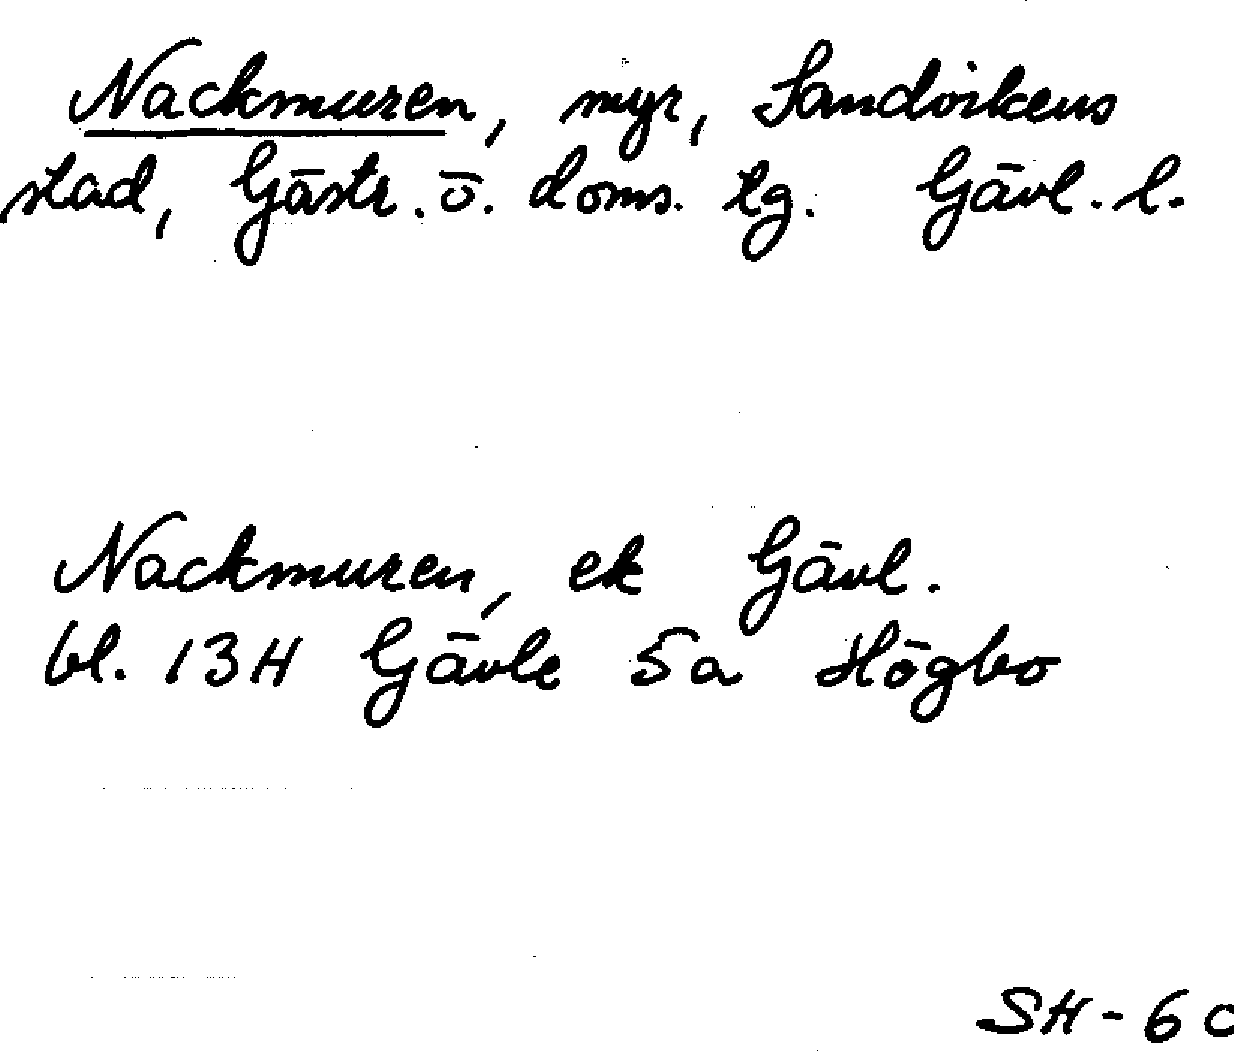 Nackmuren, myr, Sandvikens
stad, Gästr. ö. doms. tg. Gävl. l.
Nackmuren, ek Gävl.
bl. 13H Gävle 5a Högbo
SH-6